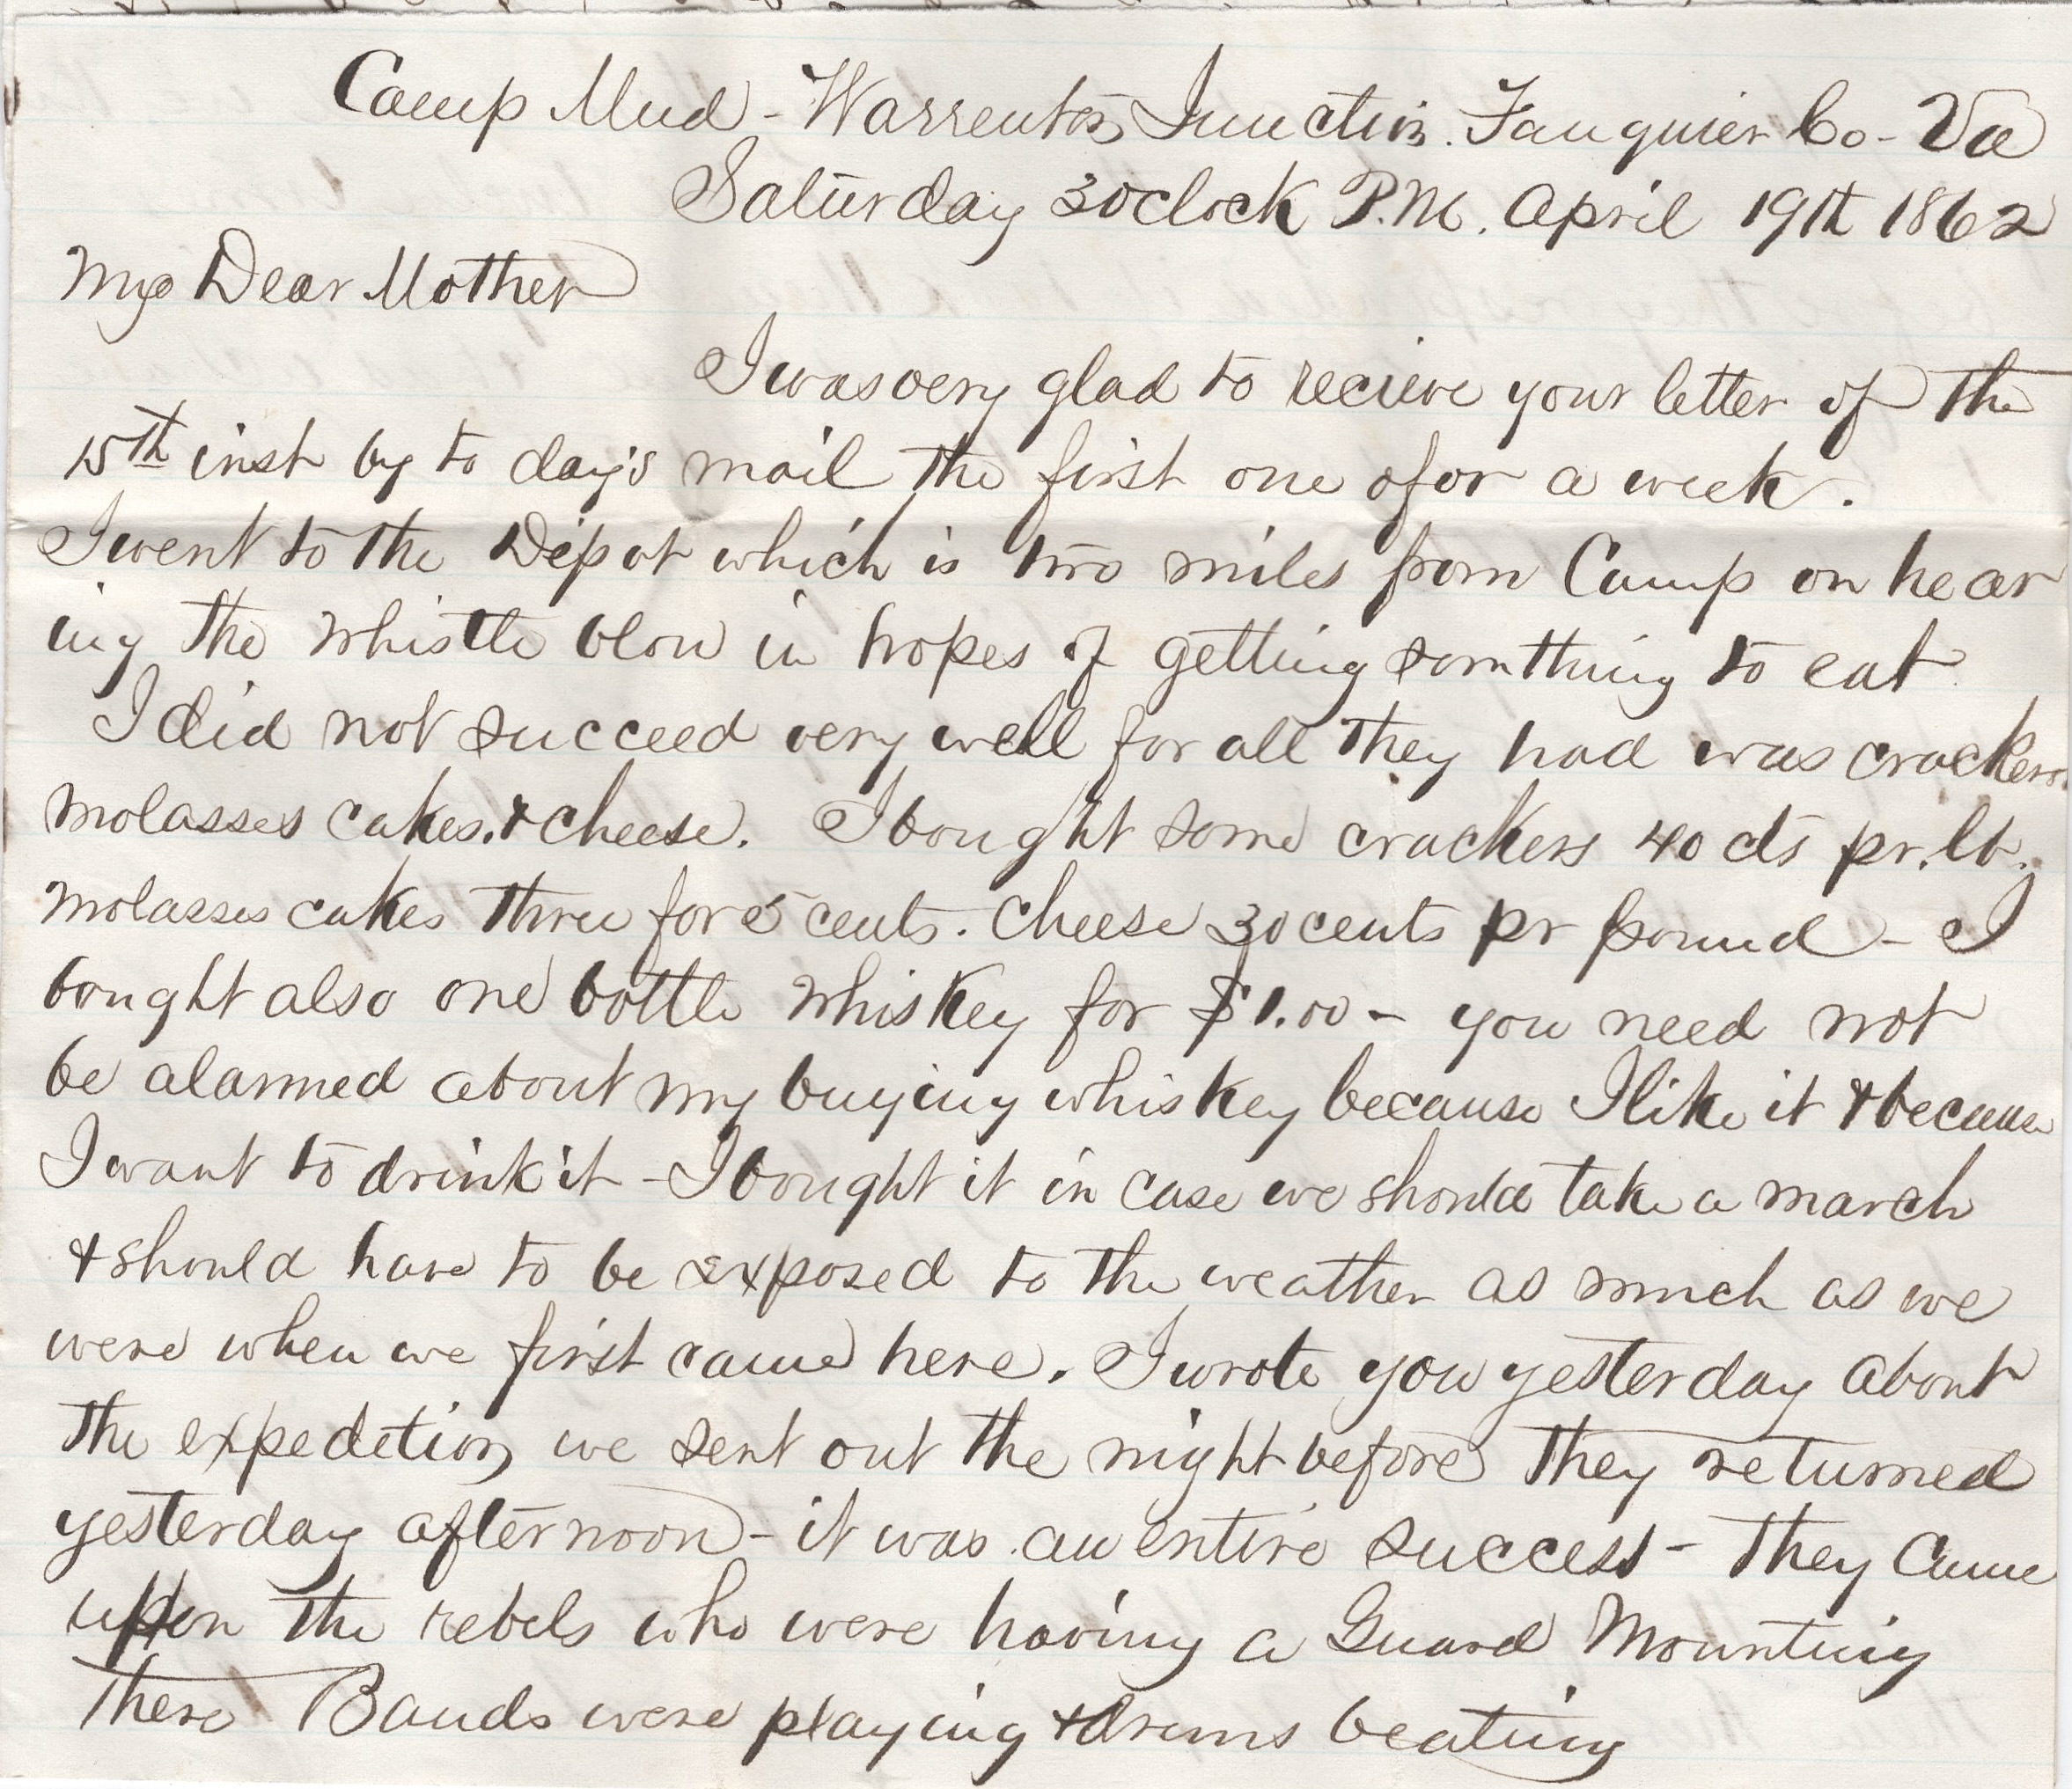 Camp Mud - Warrenton Junction. Fauquier Co - Va
Saturday 3 oclock P.M. April 19th 1862
My Dear Mother
I was very glad to recieve your letter of the
15th inst by to day's mail the first one ofor a week.
I went to the Depot which is two miles from Camp on hear
ing the whistle blow in hopes of getting somthing to eat
I did not succeed very well for all they had was crackers.
molasses cakes. & cheese. I bought some crackers 40 cts pr. lb.
molasses cakes three for 5 cents. cheese 30 cents pr pound - I
bought also one bottle whiskey for $1.00 - you need not
be alarmed about my buying whiskey because I like it & because
I want to drink it - I bought it in case we should take a march
& should have to be exposed to the weather as much as we
were when we first came here. I wrote you yesterday about
the expedetion we sent out the night before they returned
yesterday afternoon - it was an entire success - They came
upon the rebels who were having a Guard Mounting
There Bands were playing & drums beating